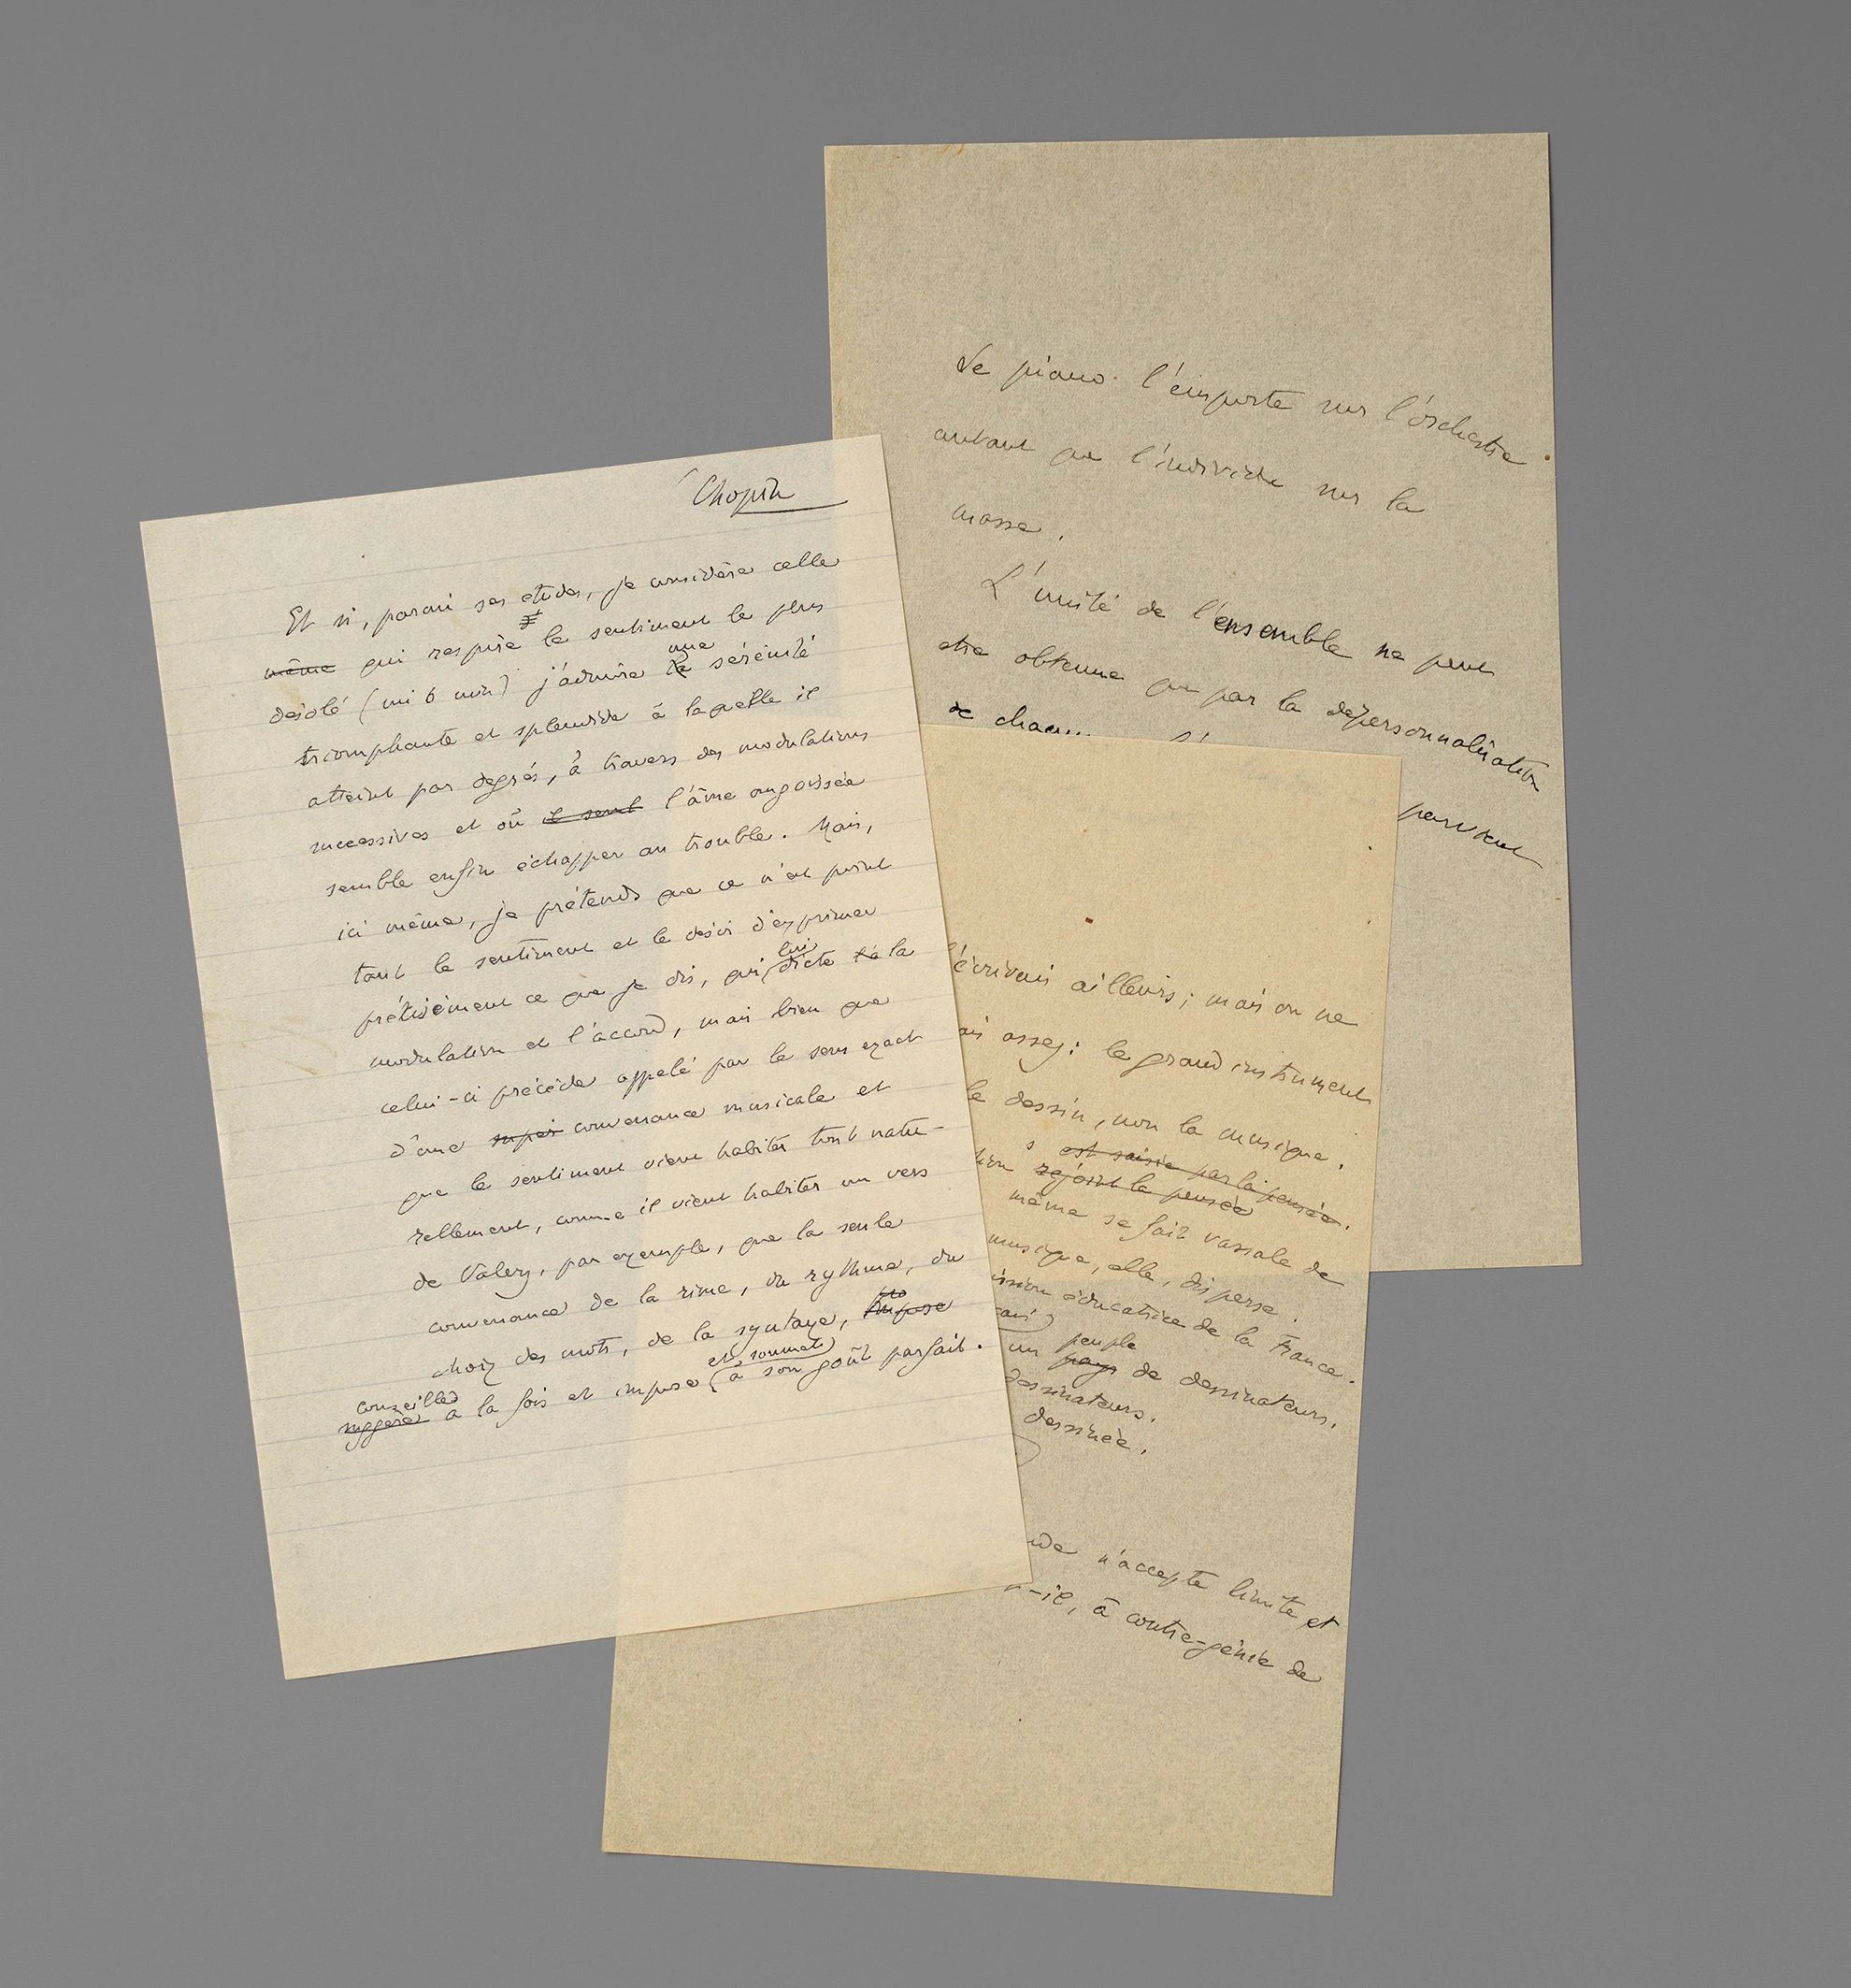 Chopin
Et si, parmi ses études, je considère celle
même qui respire le sentiment le plus
désolé (mi b min) j'admire la une sérénité
triomphante et splendide à laquelle il
atteint par degrés, à travers des modulations
successives et où il semb l'âme angoissée
semble enfin échapper au trouble. Mais,
ici même, je prétends que ce n'est point
tant le sentiment et le désir d'exprimer
précisément ce que je dis, qui lui dicte la
modulation et l'accord, mais bien que
celui-ci précède appelé par le sens exact
d'une convenance musicale et
que le sentiment vient habiter tout natu-
rellement, comme il vient habiter un vers
de Valery, par exemple, que la seule
convenance de la rime, du rythme, du
choix des mots, de la syntaxe, impose
conseille
suggère à la fois et impose et soumet à son goût parfait.
Le piano l'emporte sur l'orchestre
autant que l'individu sur la
masse.
L'unité de l'ensemble ne peut
être obtenue que par la dépersonnalisation
de chacun
écrivais ailleurs; mais on ne
assez: le grand instrument
le dessin, non la musique.
s est saisie par la pensée.
rejoint la pensée
même se fait vassale de
musique, elle, disperse.
éducatrice de la France.
peuple
un pays de dessinateurs.
dessinateurs.
dessinée.
n'accepte limite et
-il, à contre-génie de